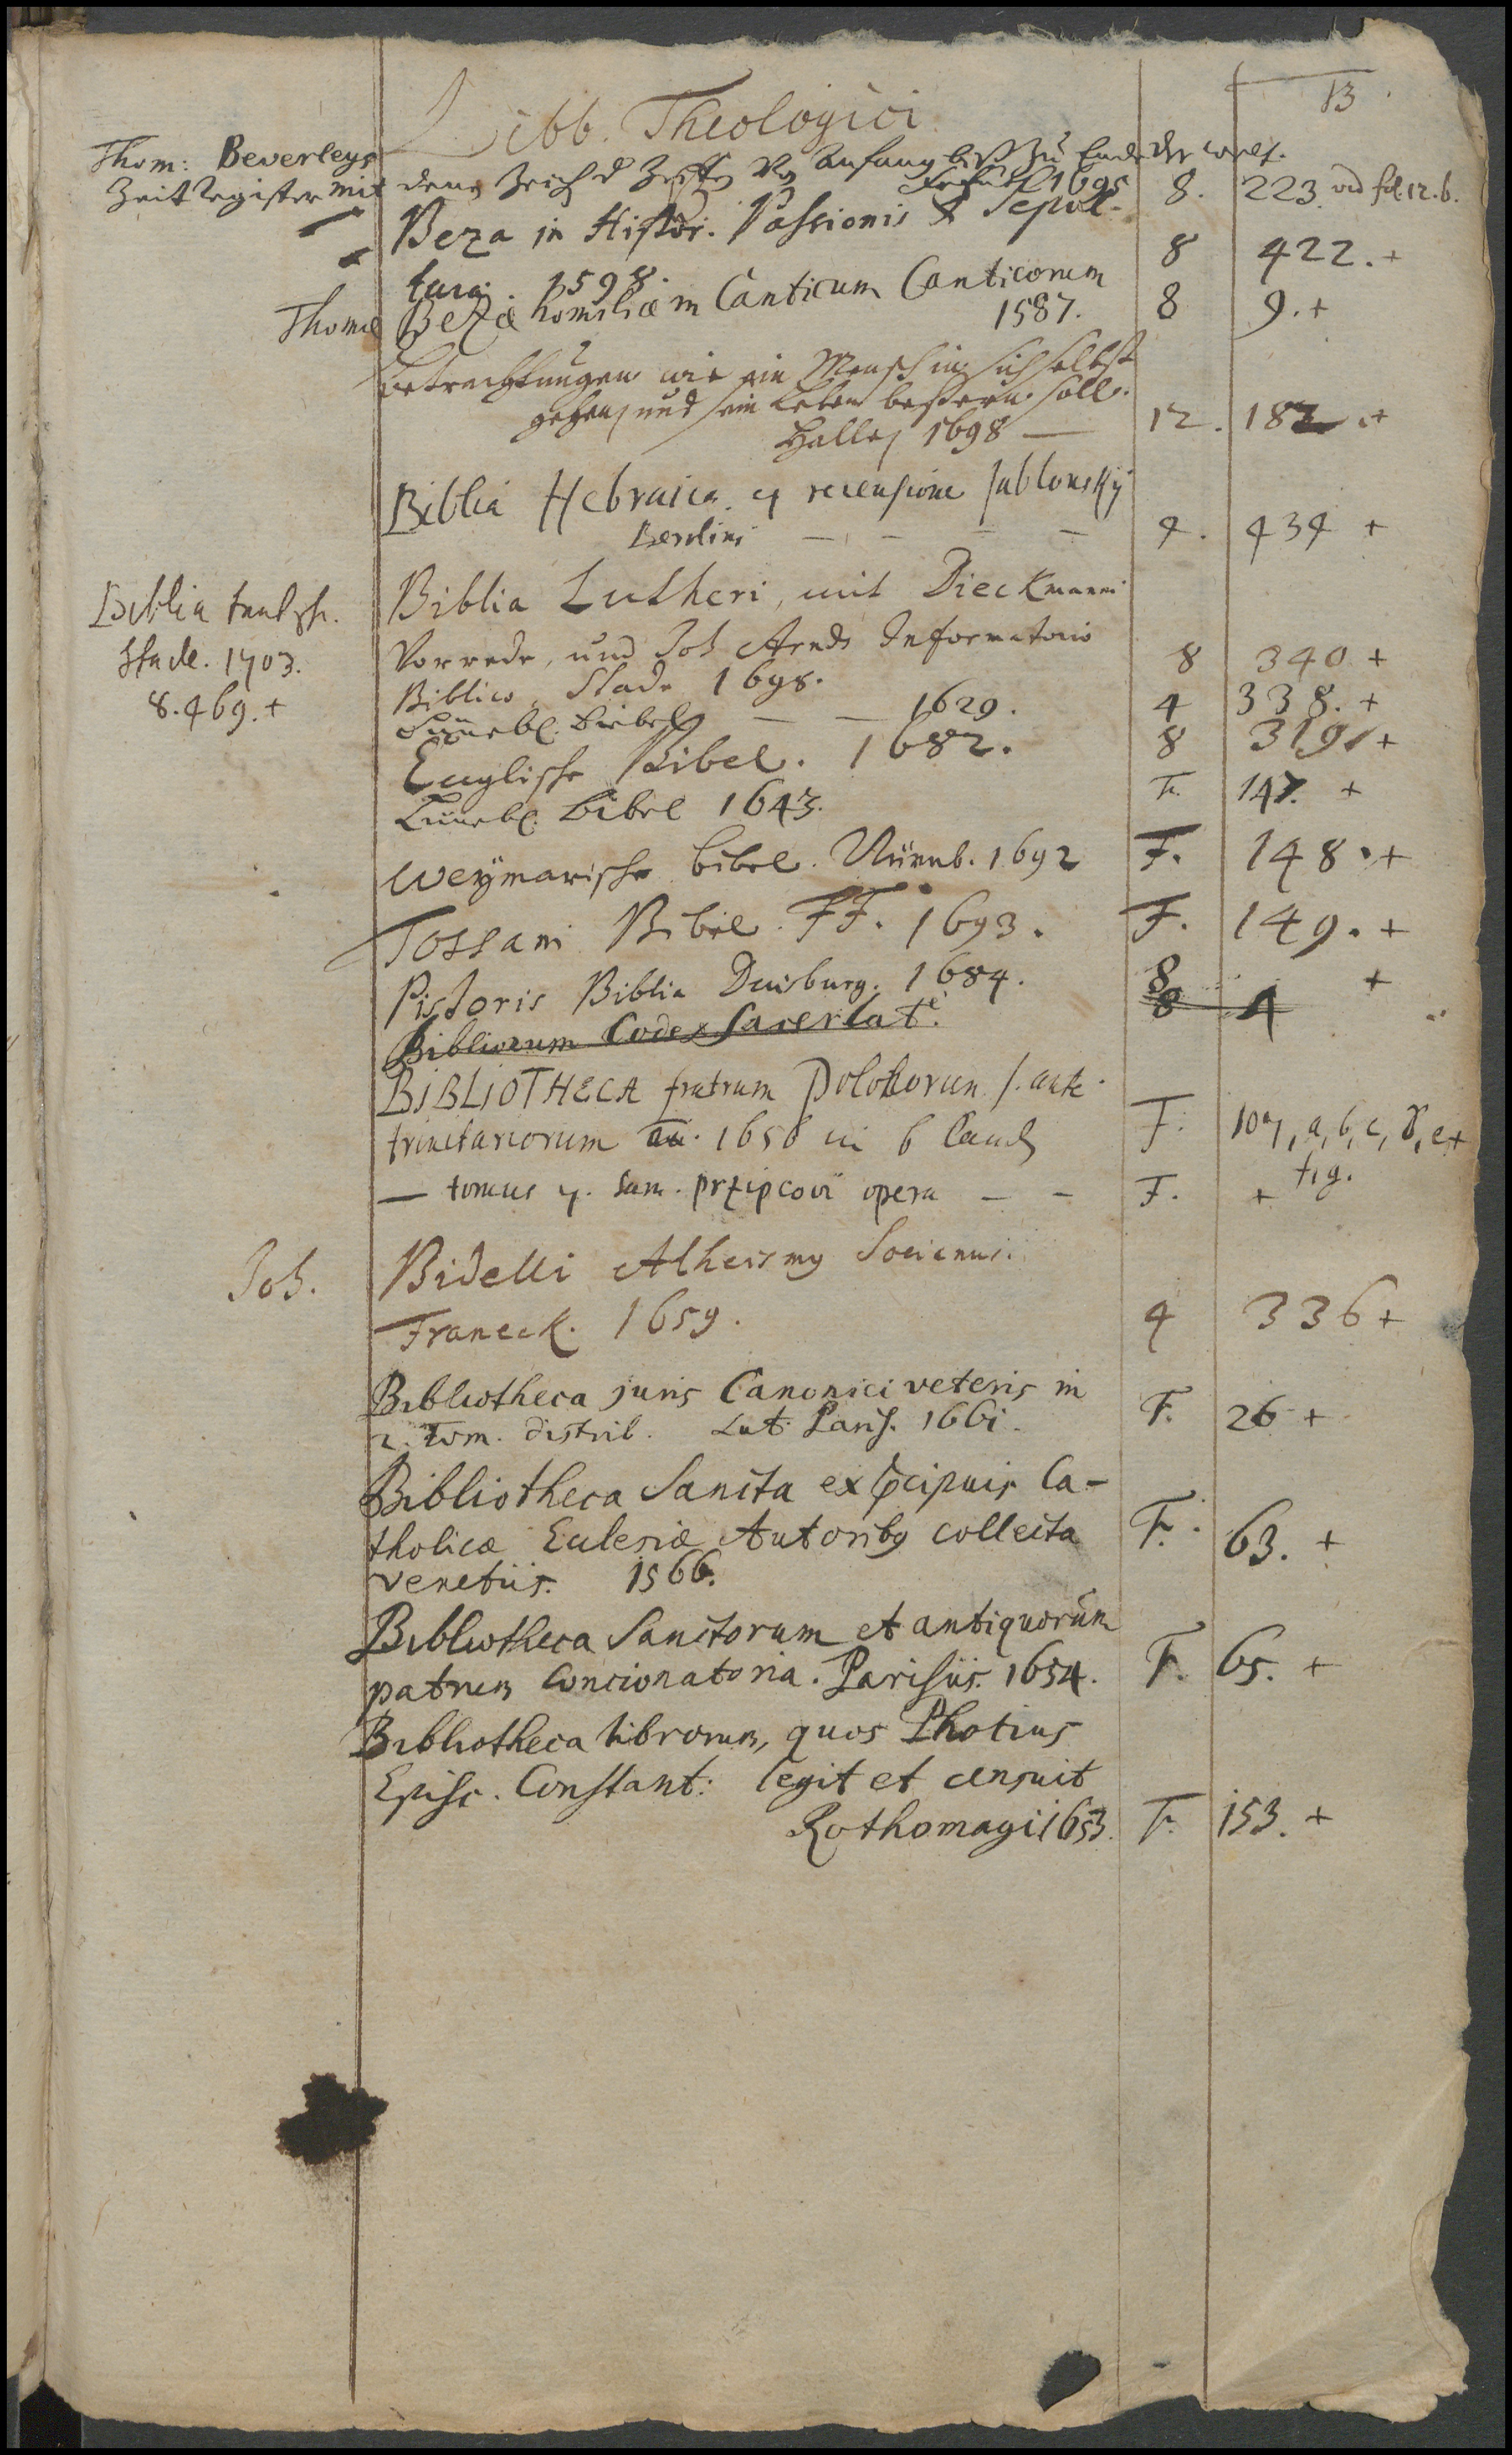 13
Libb. Theologici
Thom: Beverleys
Zeit Register mit denen Zeich d Zeiten Von Anfang biß zu Ende der Welt.
Frfurt 1695 8. 223. vid fol. 12. b.
Beza in Histor. Passionis & Sepul-
tura. 1598. 8 422. +
Thomæ Bezæ homiliæ in Canticum Canticorum
1587. 8 9. +
Betrachtungen wie ein Mensch in sich selbst
gehen, und sein Leben beßern soll.
Halle, 1698 — 12. 182 . +
Biblia Hebraica ex recensione Jablonskij
Berlini — — — — 4. 434 +
Biblia teutsch.
Stade. 1703.
8. 469. +
Biblia Lutheri, mit Dieckmanni
Vorrede, und Joh Arnds Informatorio
Biblico. Stade 1698. 8 340 +
Lüneb. Biebel — — 1629. 4 338. +
Englische Bibel. 1682. 8 319. +
Lüneb. Bibel 1643. F. 147. +
Weymarische Bibel. Nürnb. 1692 F. 148. +
Tossani Bibel. FF. 1693. F. 149. +
Pistoris Biblia Duisburg. 1684. 8 +
Bibliorum Codex Sacer lat. 8 4
BIBLIOTHECA fratrum Polonorum s. anti-
trinitariorum an. 1656 in 6 Bänd F: 107, a, b, c, d, e +
f, g.
— tomus 7. Sam. Przipcovii opera — — F. +
Joh. Bidelli Atheismus Socianus.
Franeck. 1659. 4 336 +
Bibliotheca juris Canonici veteris in
2. Tom. distrib. Lut. Paris. 1661. F. 26 +
Bibliotheca Sancta ex præcipuis Ca-
tholicæ Eclesiæ Autoribus collecta F. 63. +
Venetiis. 1566.
Bibliotheca Sanctorum et antiquorum
patrum Concionatoria. Parisiis. 1654. F. 65. +
Bibliotheca librorum, quos Photius
Episc. Constant: legit et censuit
Rothomagi 1653. F. 153. +